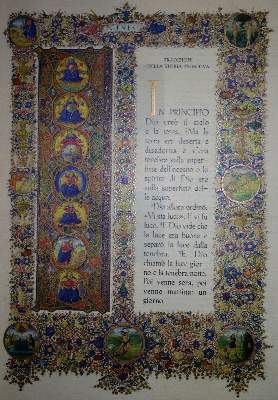 IN PRINCIPIO
Dio creò il cielo
e la terra. Ma la
terra era deserta e
disadorna e v'era
tenebra sulla super-
ficie dell'oceano e lo
spirito di Dio era
sulla superficie del-
le acque.
Dio allora ordinò:
«Vi sia luce». E vi fu
luce. E Dio vide che
la luce era buona e
separò la luce dalla
tenebra. E Dio
chiamò la luce gior-
no e la tenebra notte.
Poi venne sera, poi
venne mattina: un
giorno.